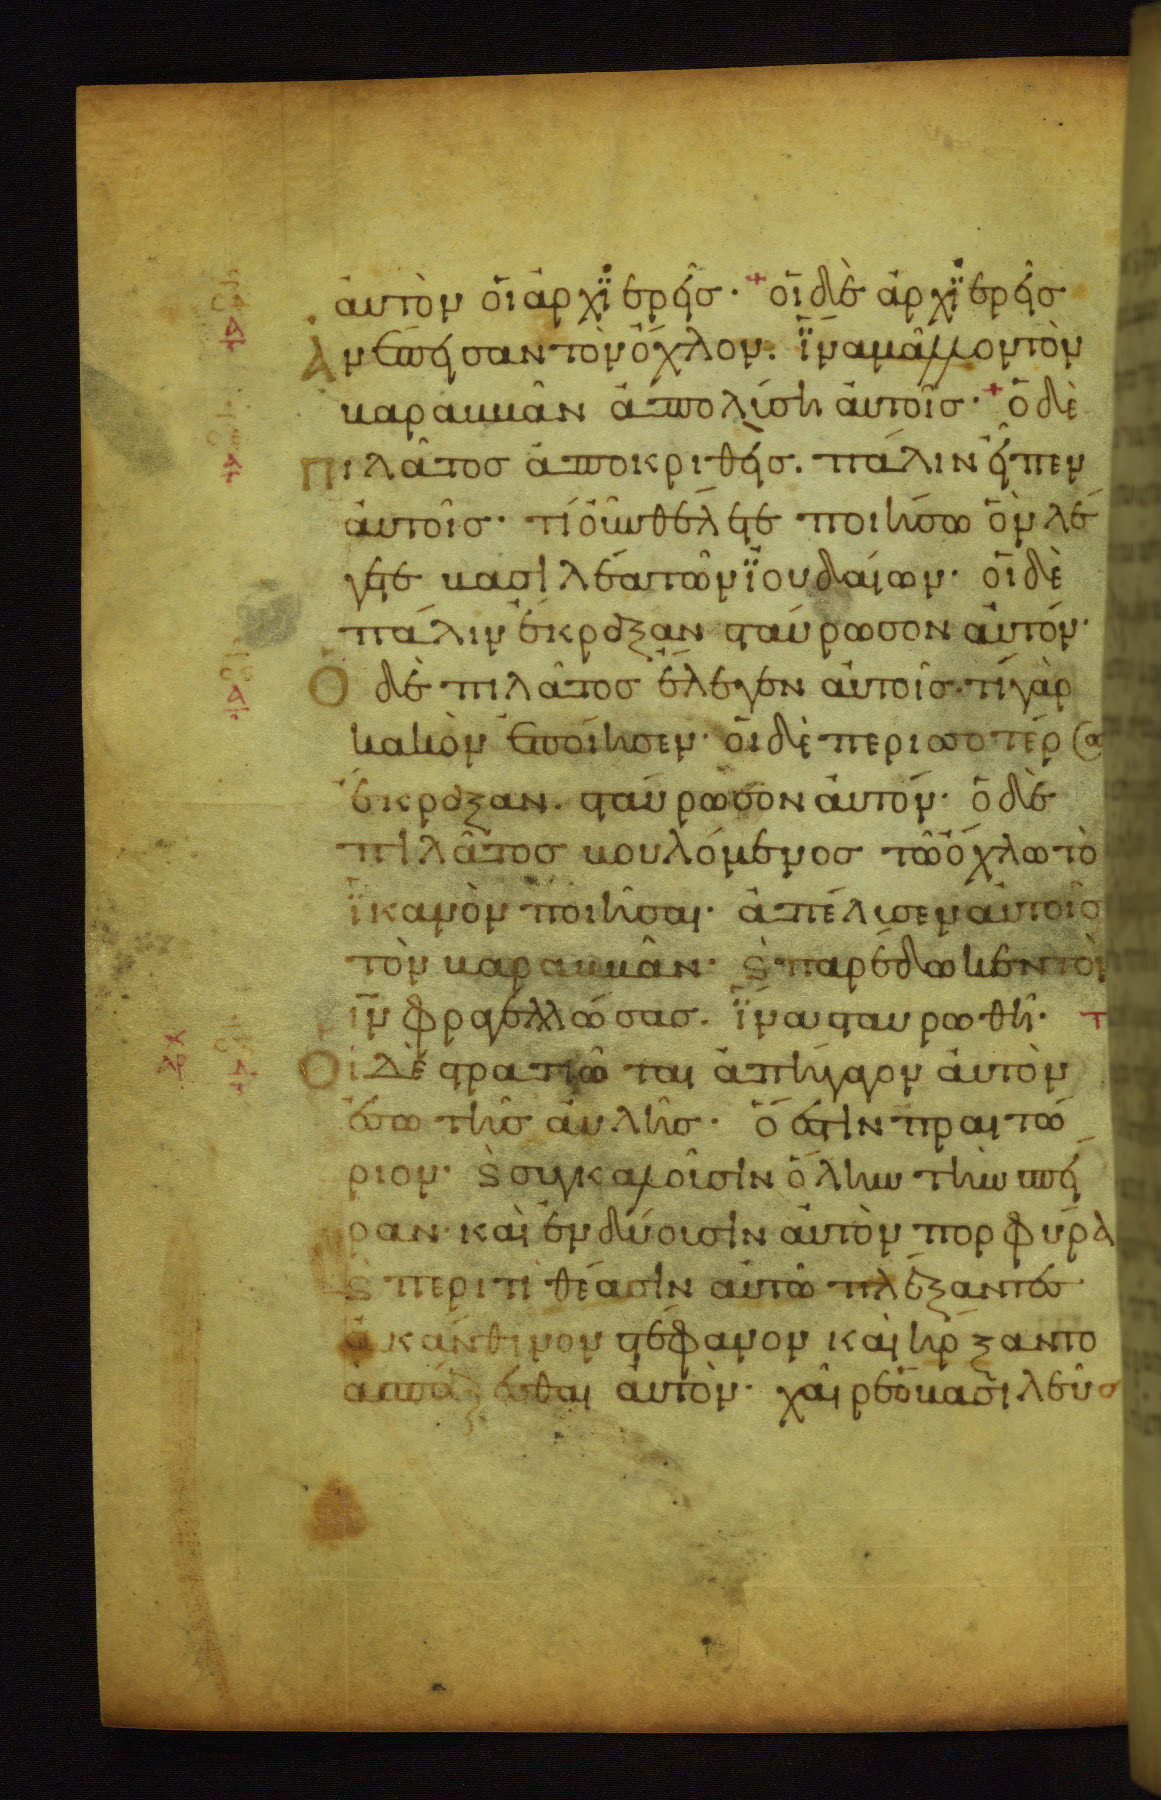 ἀυτὸν οἱ ἀρχϊερεῖσ· + οἱ δὲ ἀρχϊερεῖσ
Ἀνέπεισαν τὸν ὄχλον. ἵνα μᾶλλον τὸν
βαραββᾶν ἀπολύση ἀυτοῖσ· + ὁ δὲ
Πιλᾶτοσ ἀποκριθεὶσ. πάλιν εἶπεν
ἀυτοῖσ· τί οὖν θέλετε ποιήσω ὃν λέ
γετε βασιλέα τῶν ϊουδαίων· οἱ δὲ
πάλιν ἔκραξαν σταύρωσον ἀυτόν·
Ὁ δὲ πιλᾶτοσ ἔλεγεν ἀυτοῖσ· τί γὰρ
κακὸν ἐποίησεν· οἱ δὲ περισσοτέρωσ
ἔκραξαν. σταύρωσον ἀυτόν· ὁ δὲ
πιλᾶτοσ βουλόμενοσ τῶ ὄχλω τὸ
ϊκανὸν ποιῆσαι· ἀπέλυσεν ἀυτοῖσ
τὸν βαραββᾶν· ϗ παρέδωκεν τὸν
ιν̄ φραγελλώσασ. ἵνα σταυρωθῆ· τ
Οἱ δὲ στρατιῶται ἀπήγαγον ἀυτὸν
ἔσω τῆσ ἀυλῆσ· ὅ ἐστιν πραιτώ
ριον· ϗ συγκαλοῦσιν ὅλην τὴν σπεῖ
ραν· καὶ ἐνδύουσιν ἀυτὸν πορφύρα
ϗ περιτιθέασιν ἀυτῶ πλέξαντεσ
ἀκάνθινον στέφανον καὶ ἤρξαντο
ἀσπάζεσθαι ἀυτὸν· χαῖρε ὁ βασιλεὺσ